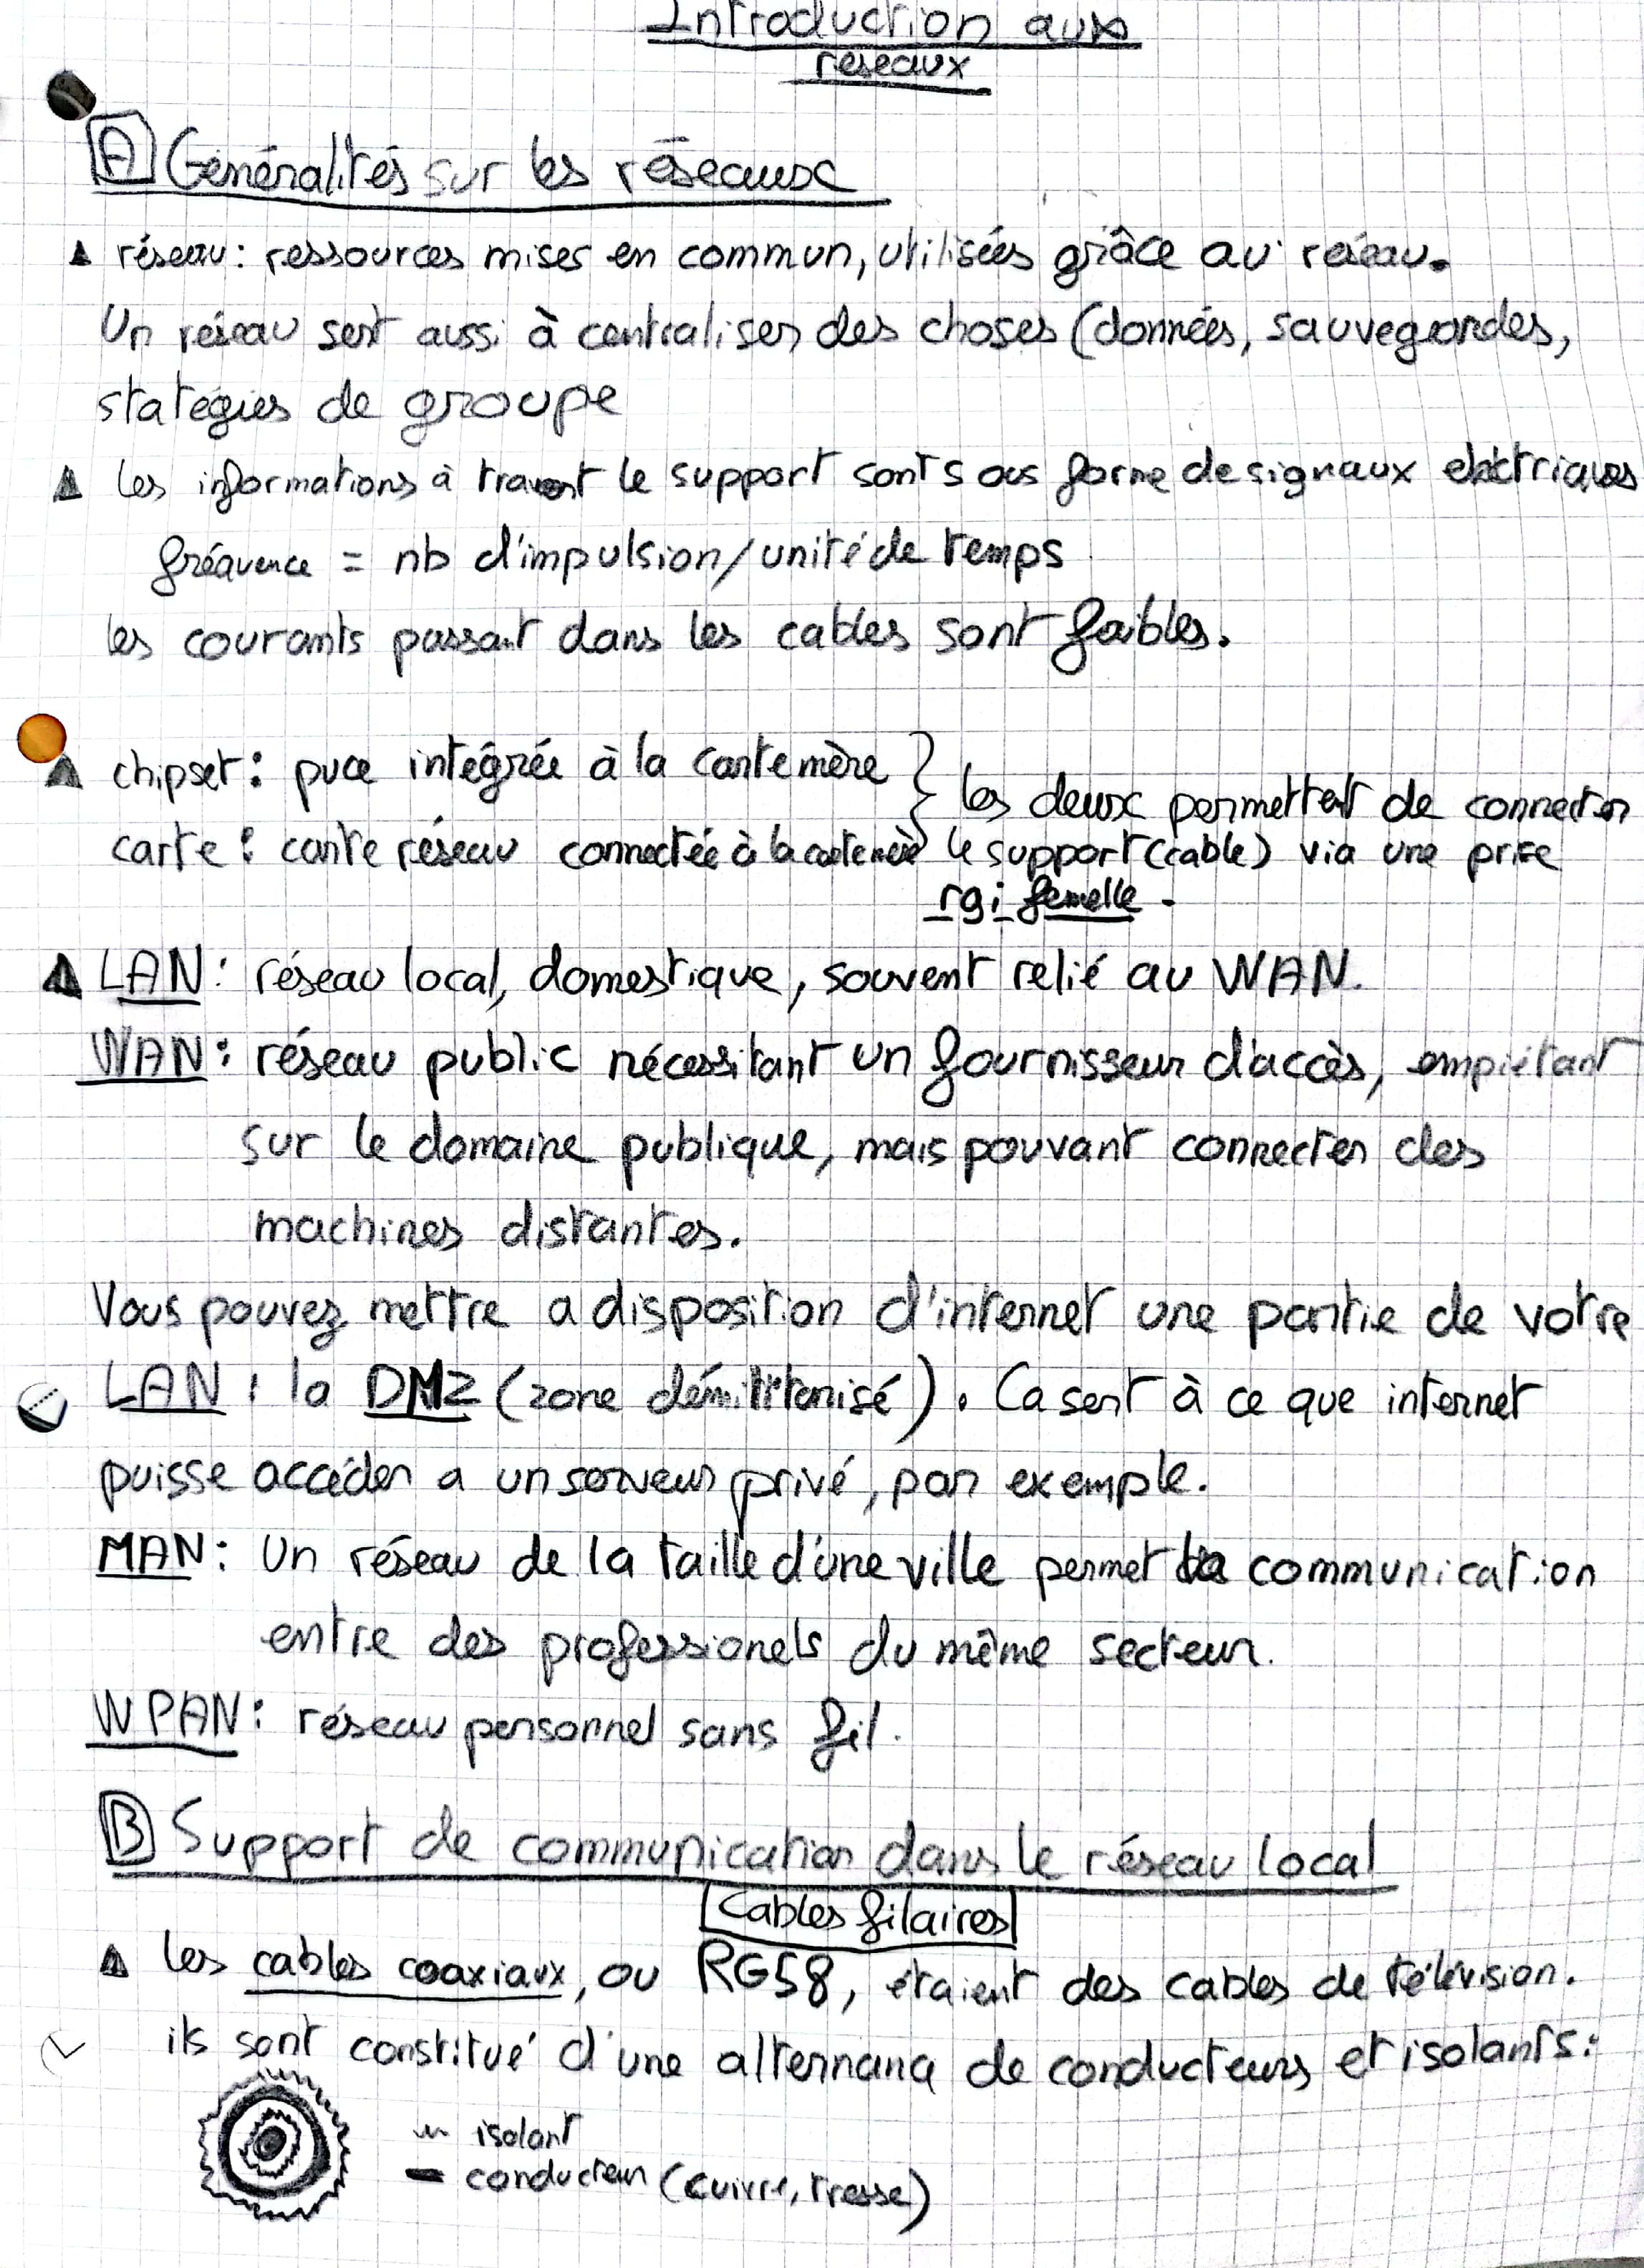 Introduction aux
réseaux
A Généralités sur les réseaux
réseau : ressources mises en commun, utilisées grâce au réseau.
Un réseau sert aussi à centraliser des choses (données, sauvegardes,
statégies de groupe
les informations à travert le support sont sous forme de signaux electriques
fréquence = nb d'impulsion/unité de temps
les courants passant dans les cables sont faibles.
chipset : puce intégrée à la carte mère } les deux permettent de connecter
carte : carte réseau connectée à la carte mère le support (cable) via une prise
rgi femelle.
LAN : réseau local, domestique, souvent relié au WAN.
WAN : réseau public nécessitant un fournisseur d'accès, empiétant
sur le domaine publique, mais pouvant connecter des
machines distantes.
Vous pouvez mettre a disposition d'internet une partie de votre
LAN : la DMZ (zone démilitarisé). Ca sert à ce que internet
puisse accéder a un serveur privé, par exemple.
MAN : Un réseau de la taille d'une ville permet la communication
entre des professionels du même secteur.
WPAN : réseau personnel sans fil.
B Support de communication dans le réseau local
Cables filaires
les cables coaxiaux, ou RG58, étaient des cables de télévision.
ils sont constitué d'une alternance de conducteurs et isolants :
isolant
conducteur (cuivre, tresse)